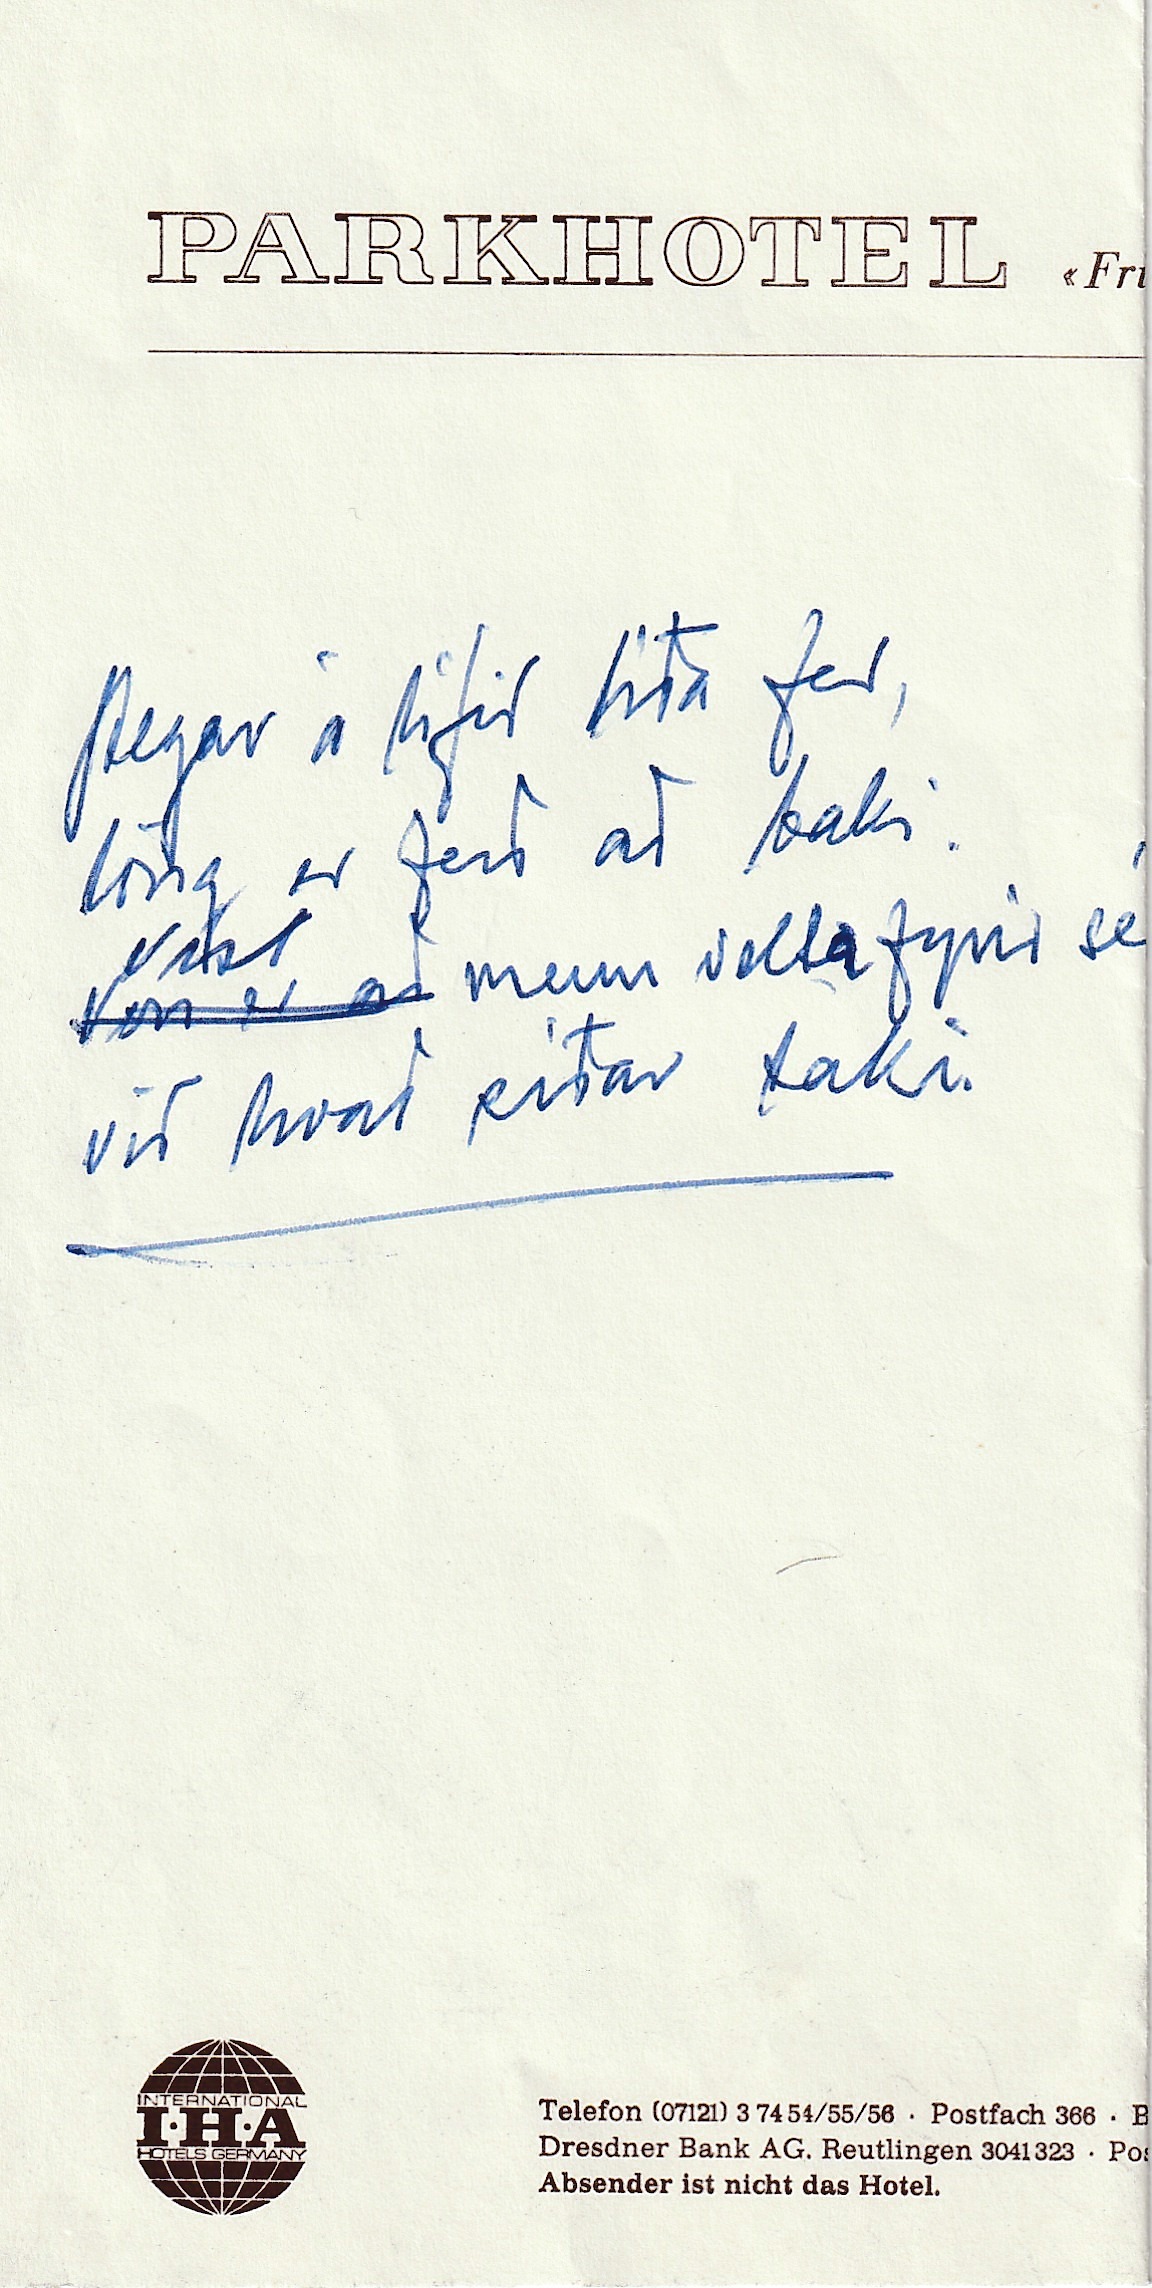 PARKHOTEL «Fri
Þegar á lífið líða fer,
löng er ferð að baki.
víst
Von er að menn velta fyrir sé
við hvað síðar taki.
INTERNATIONAL
I·H·A
HOTELS GERMANY
Telefon (07121) 3 74 54/55/56 · Postfach 366 · B
Dresdner Bank AG. Reutlingen 3041 323 · Pos
Absender ist nicht das Hotel.